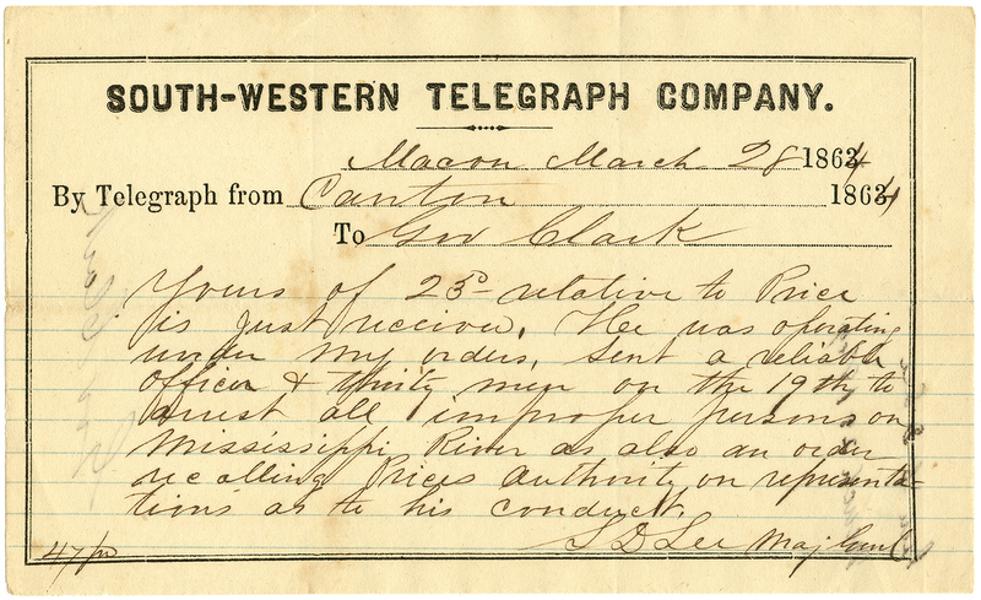 SOUTH-WESTERN TELEGRAPH COMPANY.
Macon March 28 1864
By Telegraph from Canton 1864
To Gov Clark
Yours of 23d relative to Price
is just received. He was operating
under my orders, sent a reliable
officer & thirty men on the 19th to
arrest all improper persons on
Mississippi River as also an order
recalling Prices authority on representa-
tions as to his conduct.
S D Lee Maj Genl
47/pd